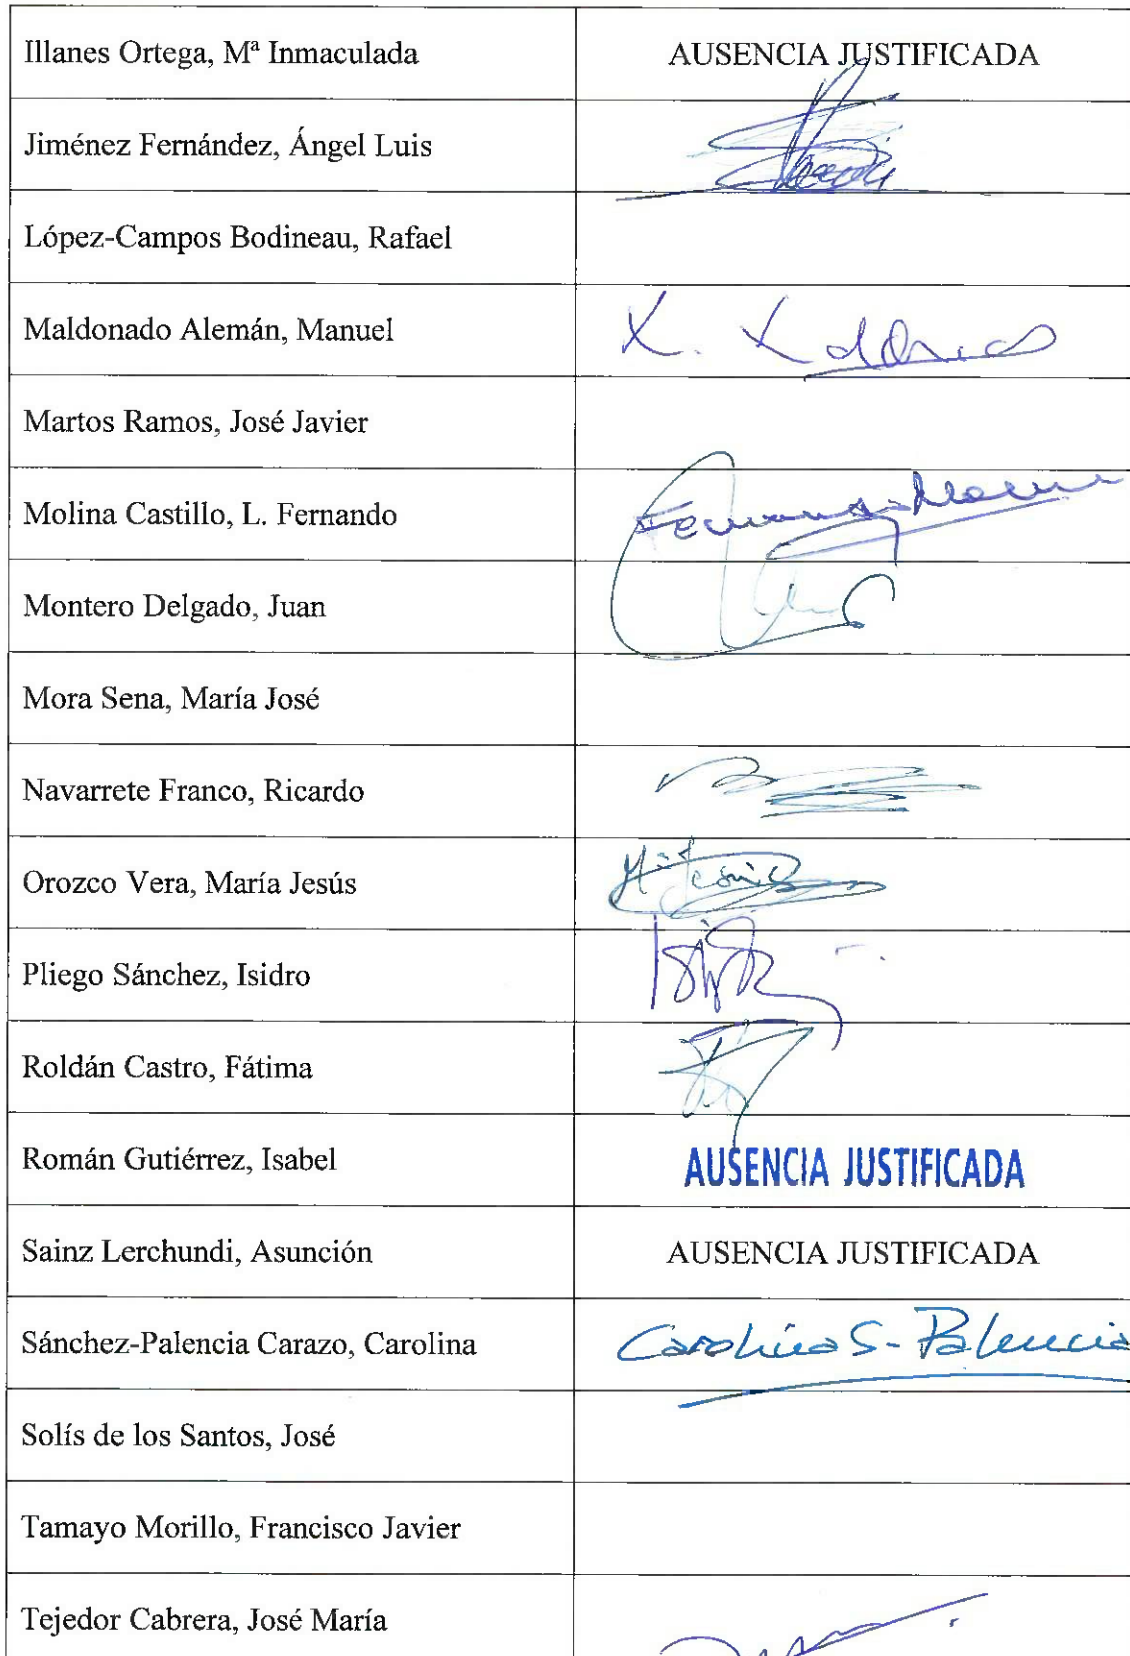 Illanes Ortega, Mª Inmaculada AUSENCIA JUSTIFICADA
Jiménez Fernández, Ángel Luis
López-Campos Bodineau, Rafael
Maldonado Alemán, Manuel
Martos Ramos, José Javier
Molina Castillo, L. Fernando
Montero Delgado, Juan
Mora Sena, María José
Navarrete Franco, Ricardo
Orozco Vera, María Jesús
Pliego Sánchez, Isidro
Roldán Castro, Fátima
Román Gutiérrez, Isabel AUSENCIA JUSTIFICADA
Sainz Lerchundi, Asunción AUSENCIA JUSTIFICADA
Sánchez-Palencia Carazo, Carolina Carolina S-Palencia
Solís de los Santos, José
Tamayo Morillo, Francisco Javier
Tejedor Cabrera, José María